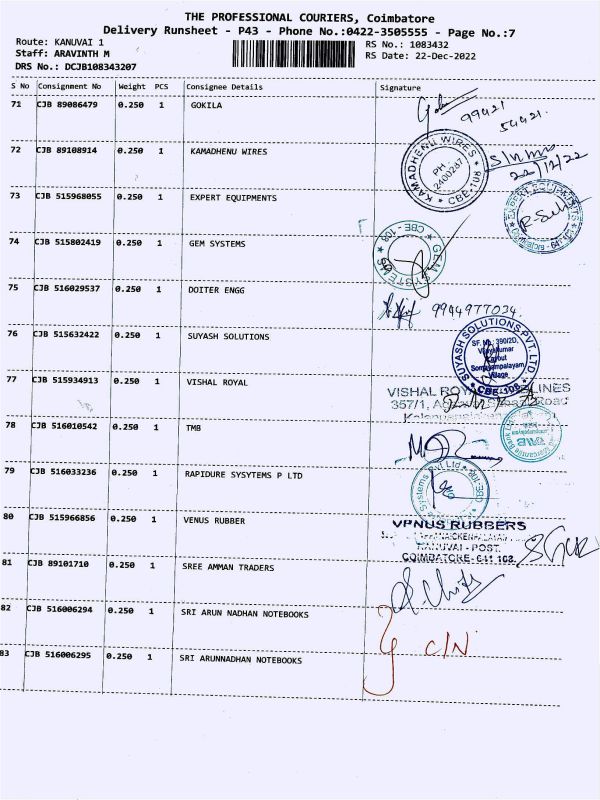 THE PROFESSIONAL COURIERS, Coimbatore
Delivery Runsheet - P43 - Phone No.:0422-3505555 - Page No.:7
Route: KANUVAI 1
RS No.: 1083432
Staff: ARAVINTH M
RS Date: 22-Dec-2022
DRS No.: DCJB108343207
S No Consignment No Weight PCS Consignee Details Signature
71 CJB 89086479 0.250 1 GOKILA
99421
54421.
72 CJB 89108914 0.250 1 KAMADHENU WIRES
KAMADHENU WIRES
PH
2400287
CBE-108
22/12/22
73 CJB 515968055 0.250 1 EXPERT EQUIPMENTS
EXPERT EQUIPMENTS
74 CJB 515802419 0.250 1 GEM SYSTEMS
GEM SYSTEMS
CBE - 108
75 CJB 516029537 0.250 1 DOITER ENGG
9944977034.
76 CJB 515632422 0.250 1 SUYASH SOLUTIONS
SUYASH SOLUTIONS PVT. LTD
SF. No.: 390/2D,
Vijayakumar
Layout
Somayampalayam
Village
CBE-108
77 CJB 515934913 0.250 1 VISHAL ROYAL
VISHAL ROYAL
357/1,
Road
78 CJB 516010542 0.250 1 TMB
79 CJB 516033236 0.250 1 RAPIDURE SYSYTEMS P LTD
Systems Pvt Ltd
CBE-108
80 CJB 515966856 0.250 1 VENUS RUBBER
VENUS RUBBERS
KANUVAI - POST.
COIMBATORE-641 108.
81 CJB 89101710 0.250 1 SREE AMMAN TRADERS
82 CJB 516006294 0.250 1 SRI ARUN NADHAN NOTEBOOKS
C/N
83 CJB 516006295 0.250 1 SRI ARUNNADHAN NOTEBOOKS